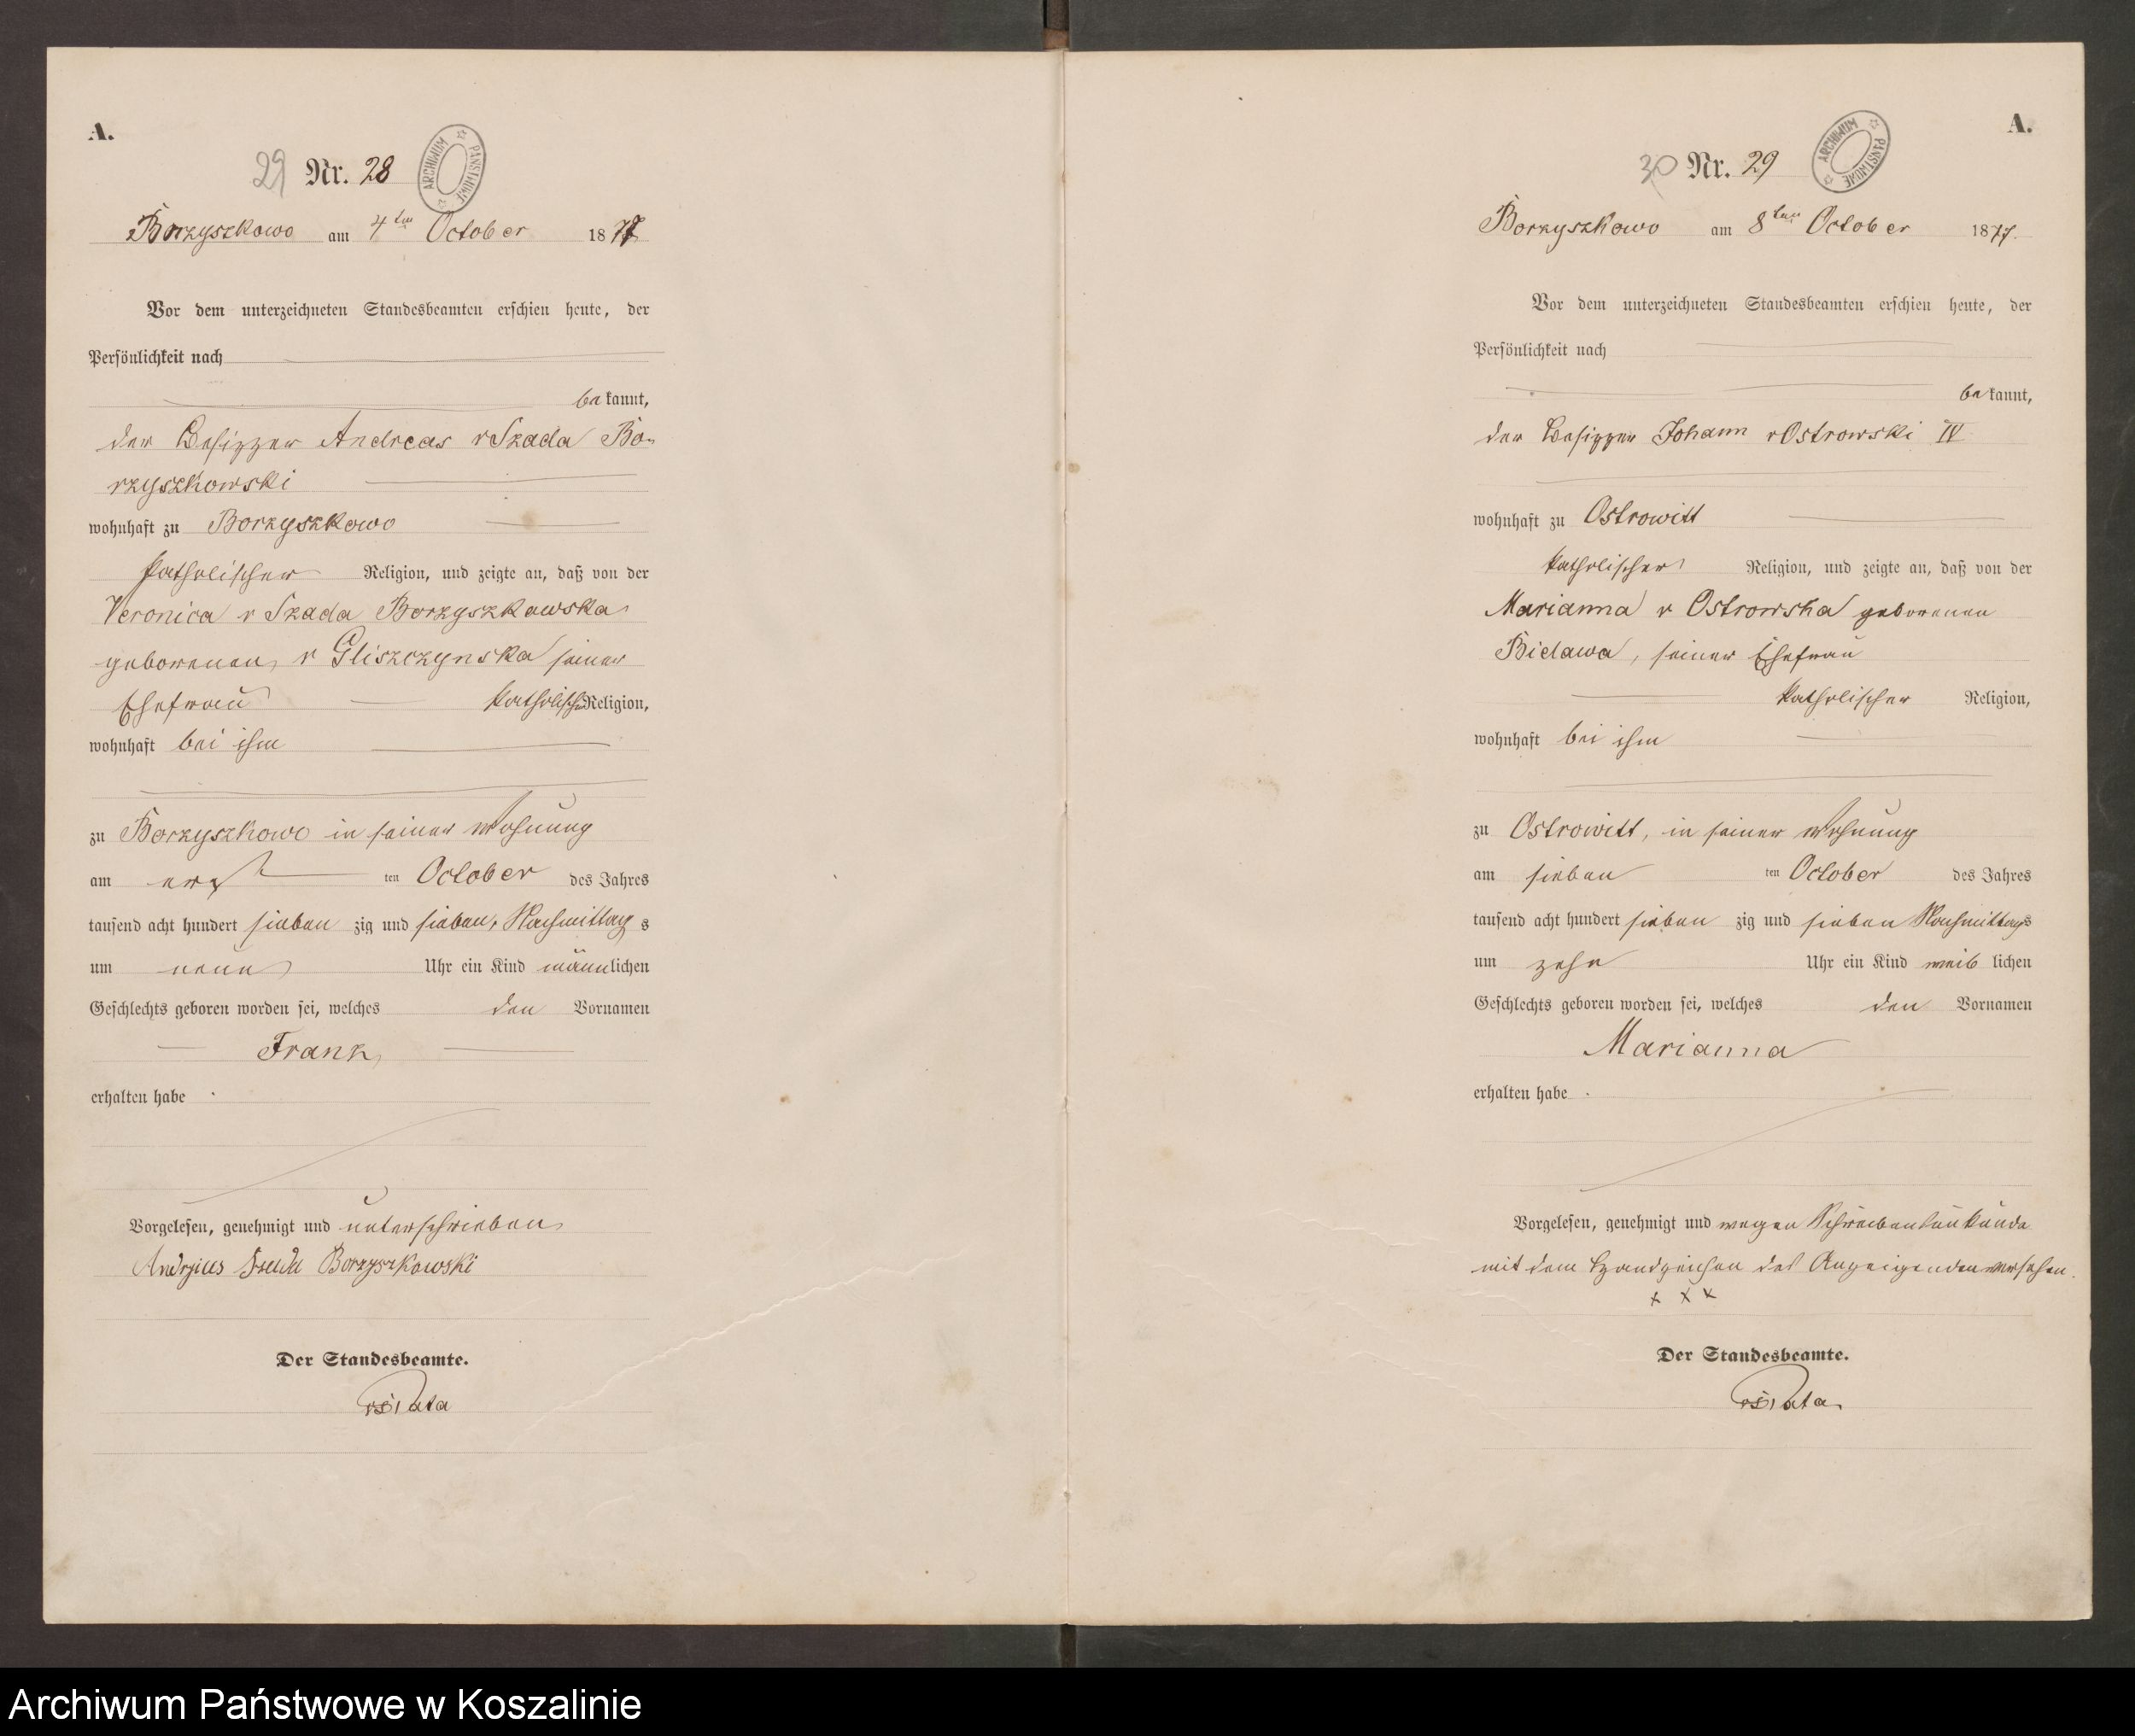 A.
29 Nr. 28
ARCHIWUM PAŃSTWOWE
Borzyszkowo am 4ten October 1877
Vor dem unterzeichneten Standesbeamten erschien heute, der
Persönlichkeit nach
bekannt,
der Besitzer Andreas v Szada Bo-
rzyszkowski
wohnhaft zu Borzyszkowo
katholischer Religion, und zeigte an, daß von der
Veronica v Szada Borzyszkowska
geborenen v Gliszczynska seiner
Ehefrau katholischer Religion,
wohnhaft bei ihm
zu Borzyszkowo in seiner Wohnung
am ersten October des Jahres
tausend acht hundert siebenzig und sieben, Nachmittags
um neun Uhr ein Kind männlichen
Geschlechts geboren worden sei, welches den Vornamen
Frank
erhalten habe.
Vorgelesen, genehmigt und unterschrieben
Borzyszkowski
Der Standesbeamte.
A.
30 Nr. 29
ARCHIWUM PAŃSTWOWE
Borzyszkowo am 8ten October 1877.
Vor dem unterzeichneten Standesbeamten erschien heute, der
Persönlichkeit nach
bekannt,
der Besitzer Johann v Ostrowski IV
wohnhaft zu Ostrowitt
katholischer Religion, und zeigte an, daß von der
Marianna v Ostrowska geborenen
Bielawa, seiner Ehefrau
katholischer Religion,
wohnhaft bei ihm
zu Ostrowitt, in seiner Wohnung
am siebenten October des Jahres
tausend acht hundert siebenzig und sieben Nachmittags
um zehn Uhr ein Kind weiblichen
Geschlechts geboren worden sei, welches den Vornamen
Marianna
erhalten habe.
Vorgelesen, genehmigt und wegen Schreibensunkunde
mit dem Handzeichen des Anzeigenden versehen.
x x x
Der Standesbeamte.
Archiwum Państwowe w Koszalinie